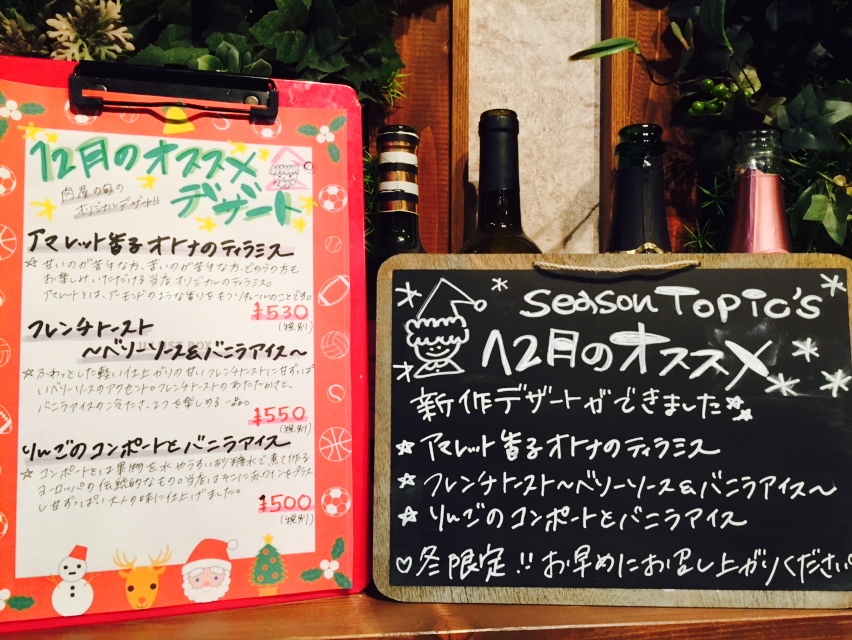 12月のオススメ
デザート
肉屋の娘の
オリジナルデザート!!
アマレット香るオトナのティラミス
☆甘いのが苦手な方、苦いのが苦手な方、どちらの方も
お楽しみいただける当店オリジナルのティラミス。
アマレットとは、アーモンドのような香りをもつリキュールのことです。
¥530
(税別)
フレンチトースト
～ベリーソース&バニラアイス～
☆ふわっとした軽い仕上がりの甘いフレンチトーストに甘ずっぱ
いベリーソースのアクセント。フレンチトーストのあたたかさと、
バニラアイスの冷たさ、2つを楽しめる一品。
¥550
(税別)
りんごのコンポートとバニラアイス
☆コンポートとは果物を水やうすい砂糖水で煮て作る
ヨーロッパの伝統的なもの。当店はそこに赤ワインをプラス
し甘ずっぱい大人の味に仕上げました。
¥500
(税別)
Season Topic's
12月のオススメ
新作デザートができました
☆アマレット香るオトナのティラミス
☆フレンチトースト～ベリーソース&バニラアイス～
☆りんごのコンポートとバニラアイス
♡冬限定!!お早めにお召し上がりください